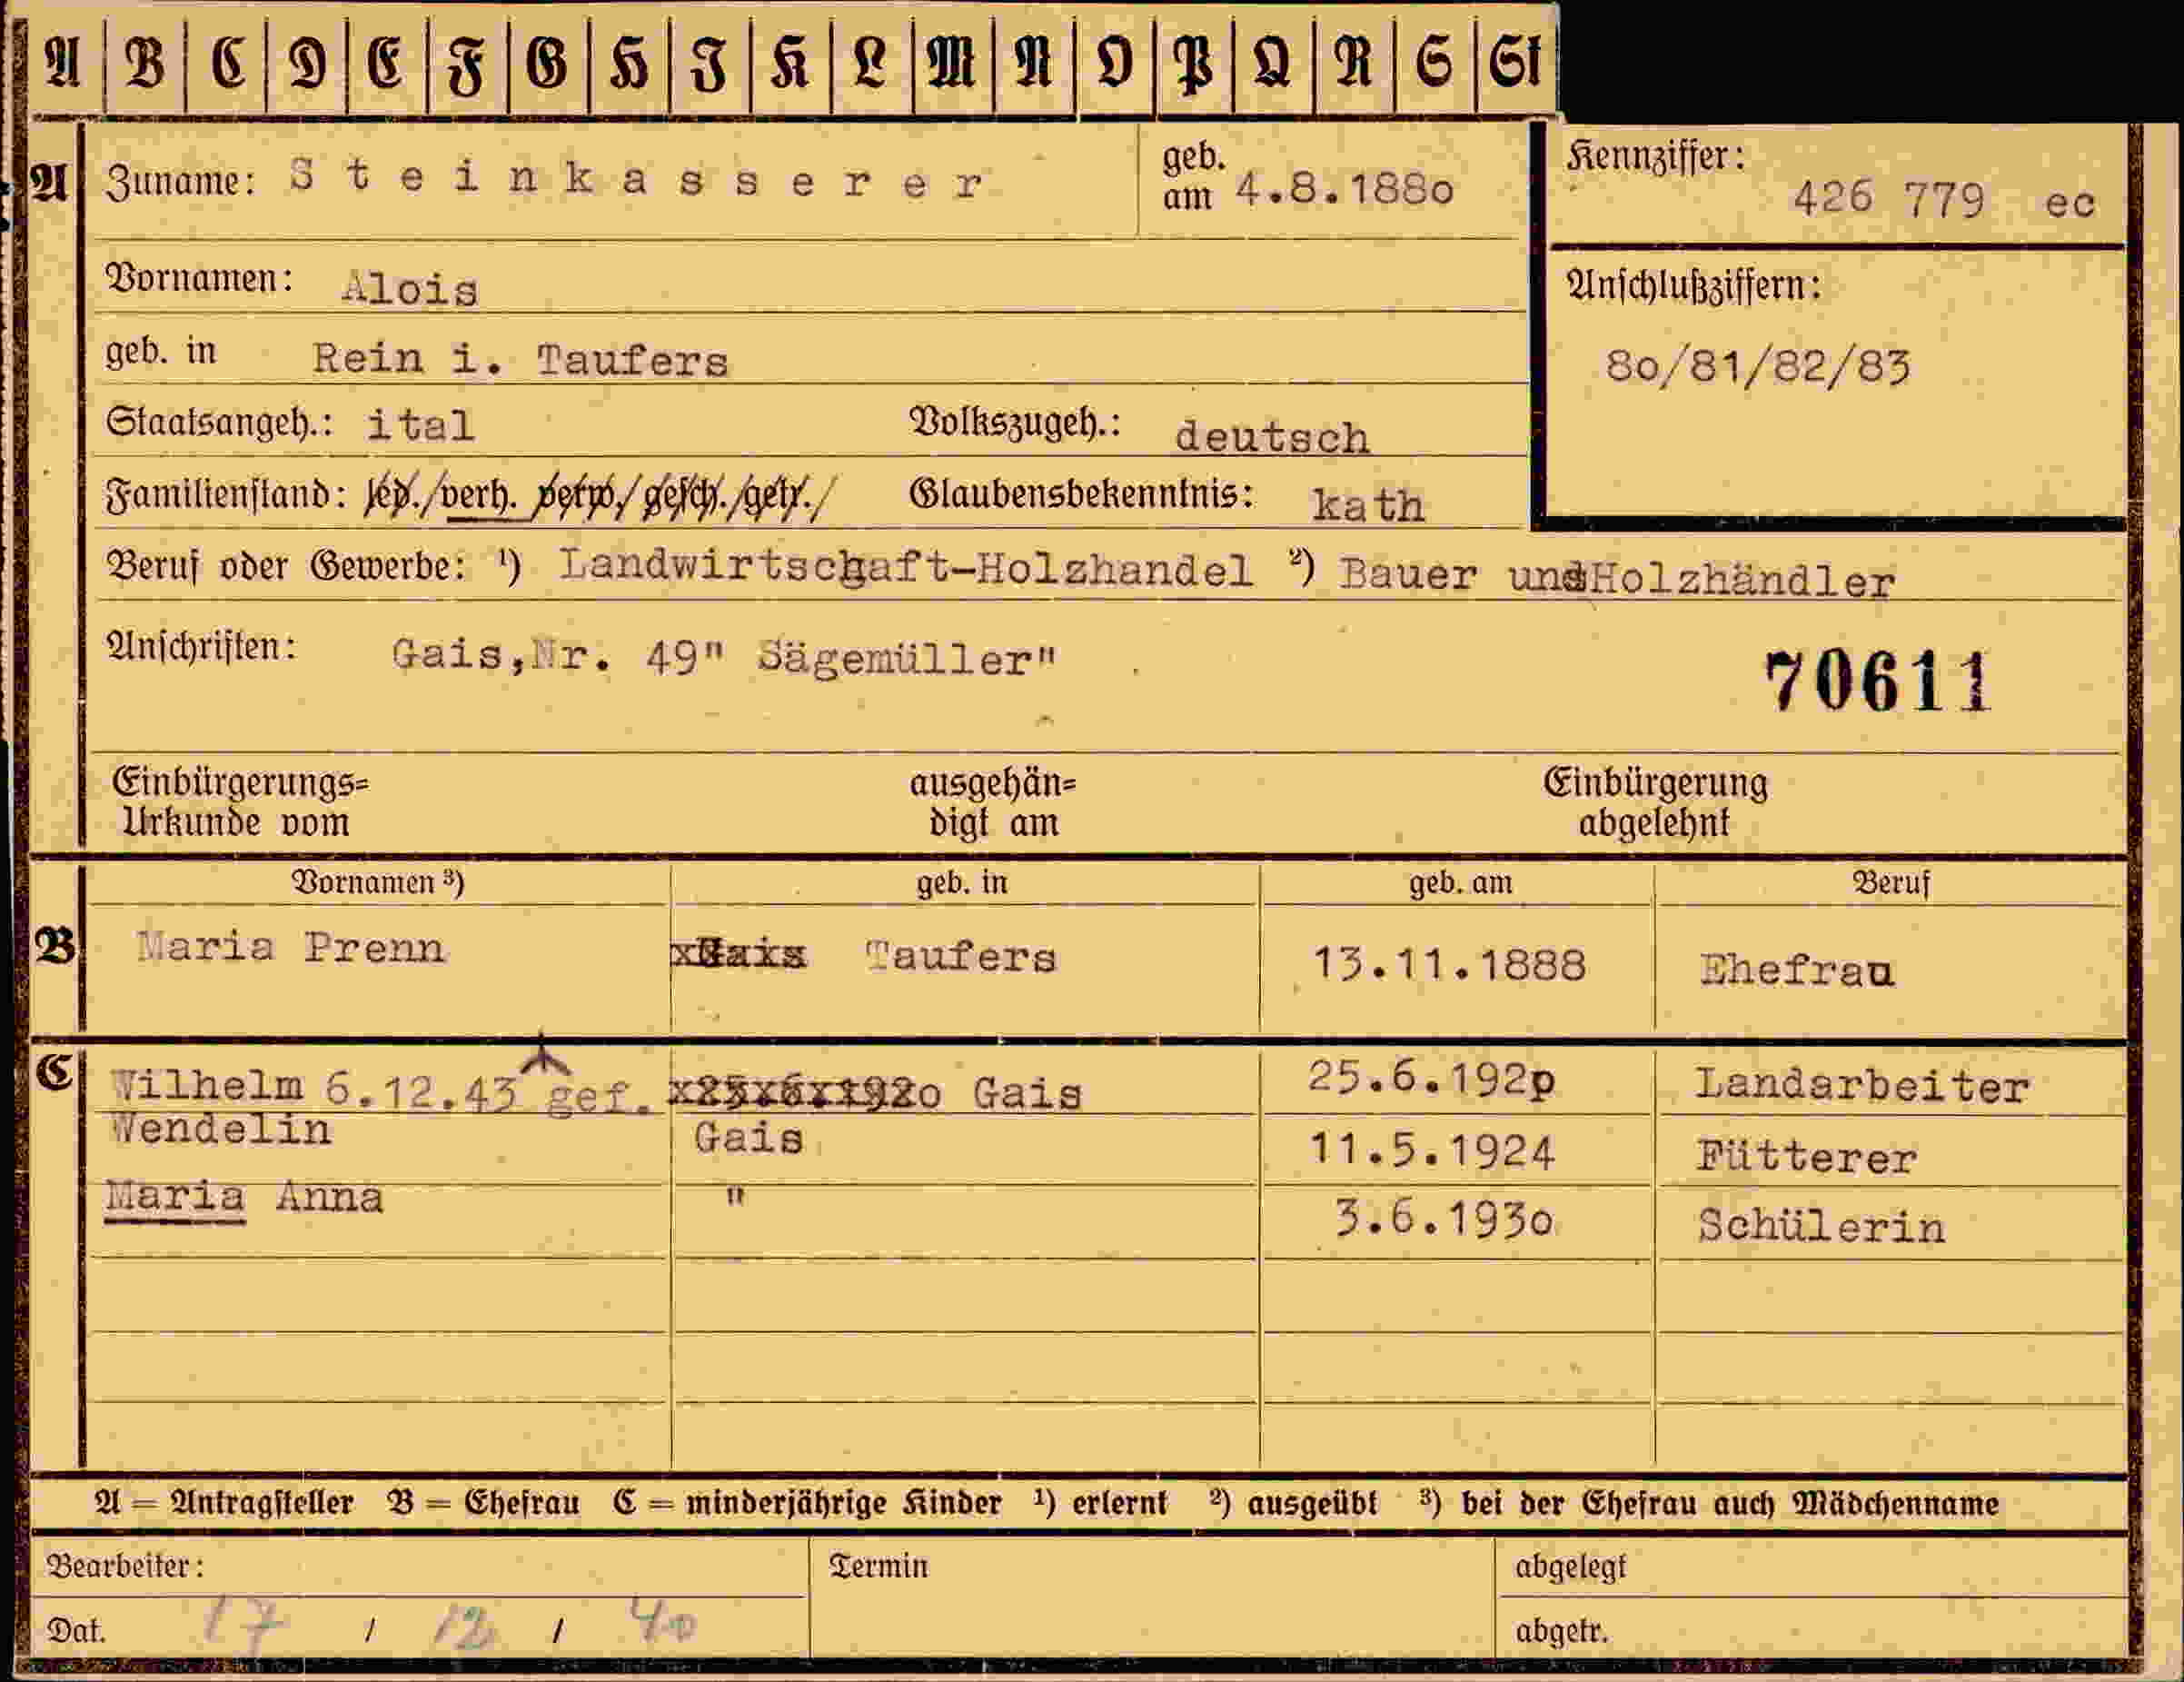 A B C D E F G H I K L M N O P Q R S St
A Zuname: Steinkasserer geb. am 4.8.188o Kennziffer: 426 779 ec
Vornamen: Alois Anschlußziffern:
geb. in Rein i. Taufers 8o/81/82/83
Staatsangeh.: ital Volkszugeh.: deutsch
Familienstand: led./verh. verw./gesch./getr./ Glaubensbekenntnis: kath
Beruf oder Gewerbe: ¹) Landwirtschaft-Holzhandel ²) Bauer undHolzhändler
Anschriften: Gais,Nr. 49" Sägemüller"
70611
Einbürgerungs= ausgehän= Einbürgerung
Urkunde vom digt am abgelehnt
Vornamen ³) geb. in geb. am Beruf
B Maria Prenn Taufers 13.11.1888 Ehefrau
C Wilhelm 6.12.43 gef. Gais 25.6.192p Landarbeiter
Wendelin Gais 11.5.1924 Fütterer
Maria Anna " 3.6.193o Schülerin
A = Antragsteller B = Ehefrau C = minderjährige Kinder ¹) erlernt ²) ausgeübt ³) bei der Ehefrau auch Mädchenname
Bearbeiter: Termin abgelegt
Dat. 17 / 12 / 40 abgetr.